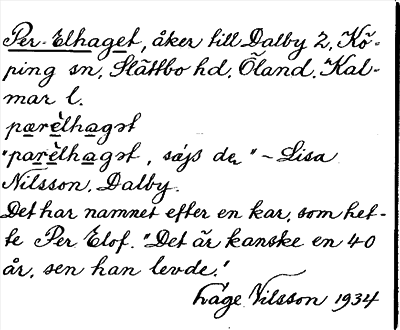 Per-Elhaget, åker till Dalby 2, Kö-
ping sn, Slättbo hd, Öland. Kal-
mar l.
pærèlhagət
"parèlhagət, säjs de" – Lisa
Nilsson, Dalby.
Det har namnet efter en kar, som het-
te Per Elof. "Det är kanske en 40
år, sen han levde."
Låge Nilsson 1934